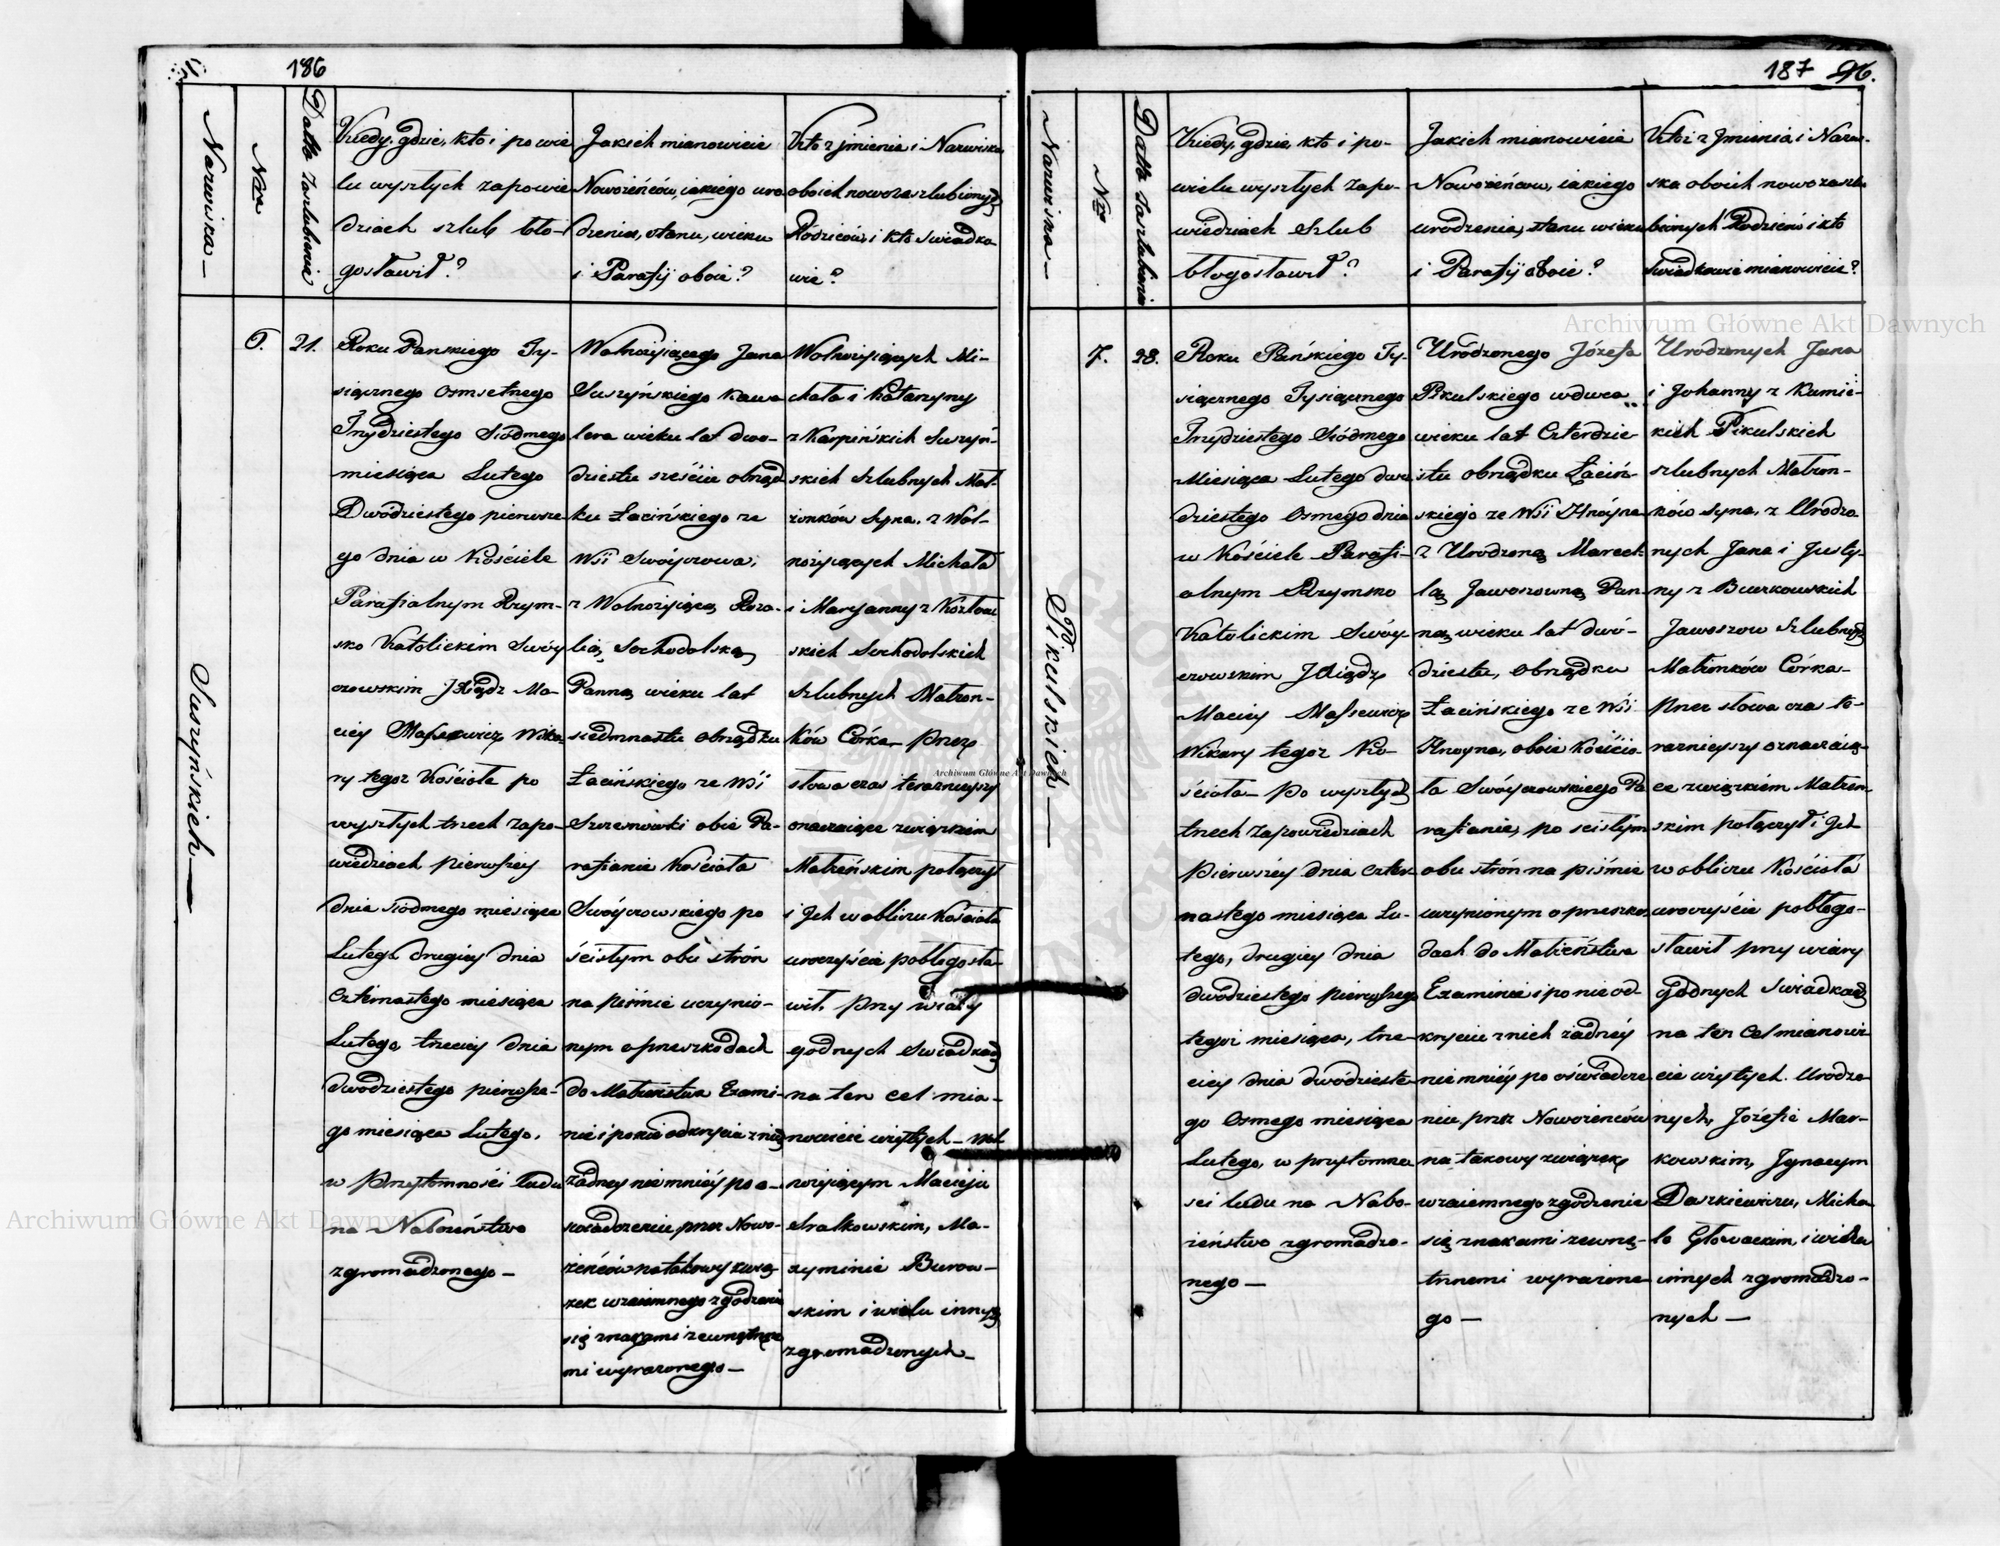 186
Nazwiska
Nra
Datta zaślubienia
Kiedy, gdzie, kto i po wie
lu wyszłych zapowie
dziach szlub bło-
gosławił?
Jakich mianowicie
Nowożeńców, iakiego uro
dzenia, stanu, wieku
i Parafij oboie?
Kto z Jmienia i Nazwiska
oboich nowozaszlubionych
Rodziców, i kto Swiadko
wie?
Suszyńskich
6.
21.
Roku Panskiego Ty-
siącznego Osmsetnego
Trzydziestego Siódmego
miesiąca Lutego
Dwódziestego pierwsze-
go dnia w Kościele
Parafialnym Rzym-
sko Katolickim Swóy
czowskim JXiądz Ma-
ciey Massewicz Wika
ry tegoż Kościoła po
wyszłych trzech zapo-
wiedziach pierwszey
dnia siódmego miesiąca
Lutego, drugiey dnia
czternastego miesiąca
Lutego, trzeciey dnia
dwódziestego pierwsze-
go miesiąca Lutego,
w Przytomności Ludu
na Nabożeństwo
zgromadzonego —
Wolnożyiącego Jana
Suszyńskiego Kawa
lera wieku lat dwo-
dziestu sześciu obrząd
ku Łacińskiego ze
Wsi Swóyczowa,
z Wolnożyiącą Roza-
lią Sochodolską
Panną wieku lat
siedmnastu obrządku
Łacińskiego ze Wsi
obie Pa-
rafianie Kościoła
Swóyczowskiego po
ścisłym obu strón
na piśmie uczynio-
nym o przeszkodach
do Małżeństwa Exami-
nie i po nie odkryciu z nich
żadney nie mniéy po o-
świadczeniu przez Nowo-
żeńców na takowy zwią-
zek wzaiemnego zgodzenia
się znakami zewnętrzne
mi wyrażonego —
Wolnożyiących Mi-
chała i Katarzyny
z Karpińskich Suszyń-
skich Szlubnych Mał-
żonków Syna, z Wol-
nożyiących Michała
i Maryanny z Kozłow
skich Sochodolskich
Szlubnych Małżon-
ków Córka — przez
słowa czas teraznieyszy
oznaczaiące związkiem
Małżeńskim połączył
i Jch w obliczu Kościoła
uroczyście pobłogosła-
wił, przy wiary
godnych Swiadkach
na ten cel mia-
nowicie wzytych — Wol
nożyiącym Macieju
Ma-
xyminie Burow-
skim i wielu innych
zgromadzonych —
187 96.
Nazwiska
Nra
Datta zaślubienia
Kiedy, gdzie, kto i po-
wielu wyszłych zapo-
wiedziach Szlub
błogosławił?
Jakich mianowicie
Nowożeńców, iakiego
urodzenia, stanu wieku
i Parafij oboie?
Kto z Jmienia i Nazw-
ska oboich nowozaszlu
bionych Rodziców i kto
Swiadkowie mianowicie?
Pikulskich
7.
28.
Roku Pańskiego Ty-
siącznego Tysiącznego
Trzydziestego Siódmego
Miesiąca Lutego dwu
dziestego Osmego dnia
w Kościele Parafi-
alnym Rzymsko
Katolickim Swóy-
czowskim JXiądz
Maciey Massewicz
Wikary tegoz Ko-
ścioła — po wyszłych
trzech zapowiedziach
pierwszéy dnia czter
nastego miesiąca Lu-
tego, drugiey dnia
dwódziestego pierwszego
tegoż miesiąca, trze-
ciey dnia dwódzieste-
go Osmego miesiąca
Lutego, w przytomno
sci ludu na Nabo-
żeństwo zgromadzo-
nego —
Urodzonego Józefa
Pikulskiego wdowca
wieku lat Czterdzie
stu obrządku Łaciń-
skiego ze Wsi Hnóyna
z Urodzoną Marcel-
lą Jaworzowną Pan
ną wieku lat dwó-
dziestu, obrządku
Łacińskiego ze Wsi
Hnoyna, oboie Kościo
ła Swóyczowskiego Pa
rafianie, po scisłym
obu strón na piśmie
uczynionym o przeszko
dach do Małżeństwa
Examinie i po nie od-
kryciu z nich żadnéy
nie mniéy po oświadcze
niu przez Nowożeńców
na takowy związek
wzaiemnego zgodzenia
się znakami zewnę-
trznemi wyrażone
go —
Urodzonych Jana
i Johanny z Kamie-
kich Pikulskich
szlubnych Małżon-
ków Syna, z Urodzo
nych Jana i Justy-
ny z Burkowskich
Jaworzow Szlubnych
Małżonków Córka —
przez słowa czas te-
raznieyszy oznaczaią-
ce związkiem Małżeń-
skim połączył i Jch
w obliczu Kościoła
uroczyście pobłogo-
sławił przy wiary
godnych Swiadkach
na ten cel mianowi-
cie wzytych. Urodzo-
nych, Józefie Mar-
kowskim, Jgnacym
Daszkiewiczu, Micha
le Głowackim, i wielu
innych zgromadzo-
nych —
Archiwum Główne Akt Dawnych
Archiwum Główne Akt Dawnych
Archiwum Główne Akt Dawnych